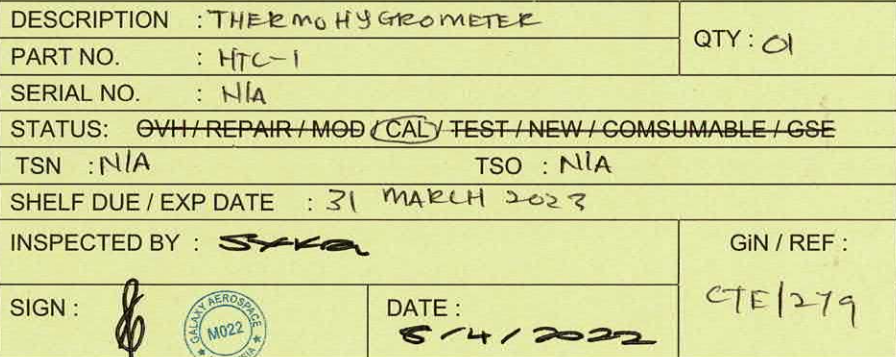 DESCRIPTION : THERMOHYGROMETER
QTY : 01
PART NO. : HTC-1
SERIAL NO. : N/A
STATUS: OVH / REPAIR / MOD / CAL / TEST / NEW / COMSUMABLE / GSE
TSN : N/A TSO : N/A
SHELF DUE / EXP DATE : 31 MARCH 2023
INSPECTED BY :
GiN / REF :
CTE/279
SIGN :
GALAXY AEROSPACE
M022
DATE :
5/4/2022